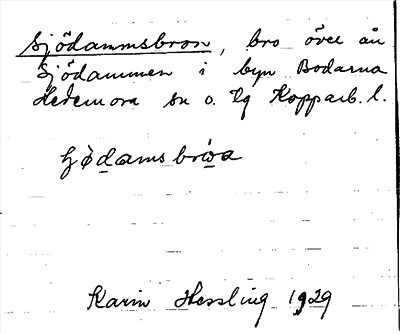 Sjödammsbron, bro över ån
Sjödammen i byn Bodarna
Hedemora sn o. tg Kopparb. l.
Karin Hessling 1929